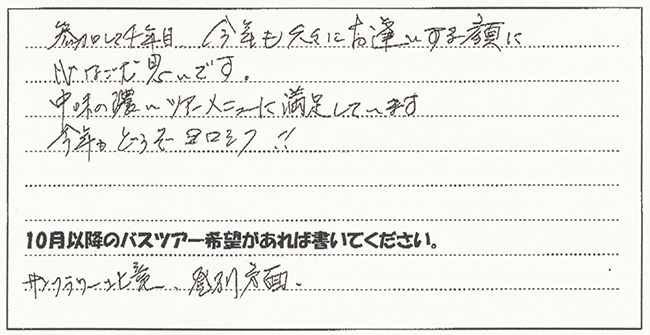 参加して4年目 今年も元気にお逢いする顔に
心なごむ思いです。
中味の濃いツアーメニューに満足しています
今年もどうぞヨロシク!!
10月以降のバスツアー希望があれば書いてください。
サンフラワー北竜、登別方面。